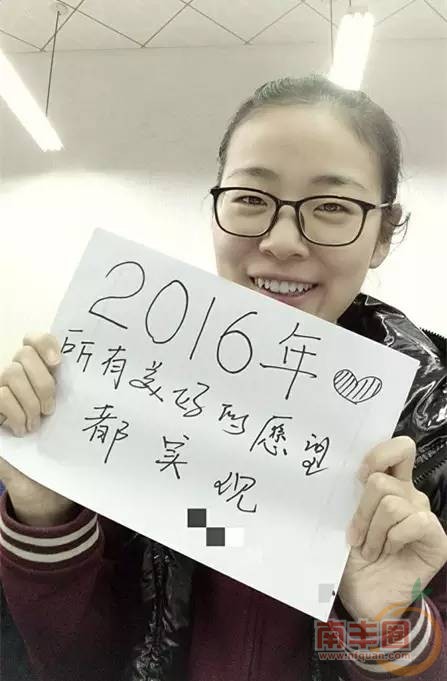 2016年
所有美好的愿望
都实现
南丰圈
www.nfquan.com